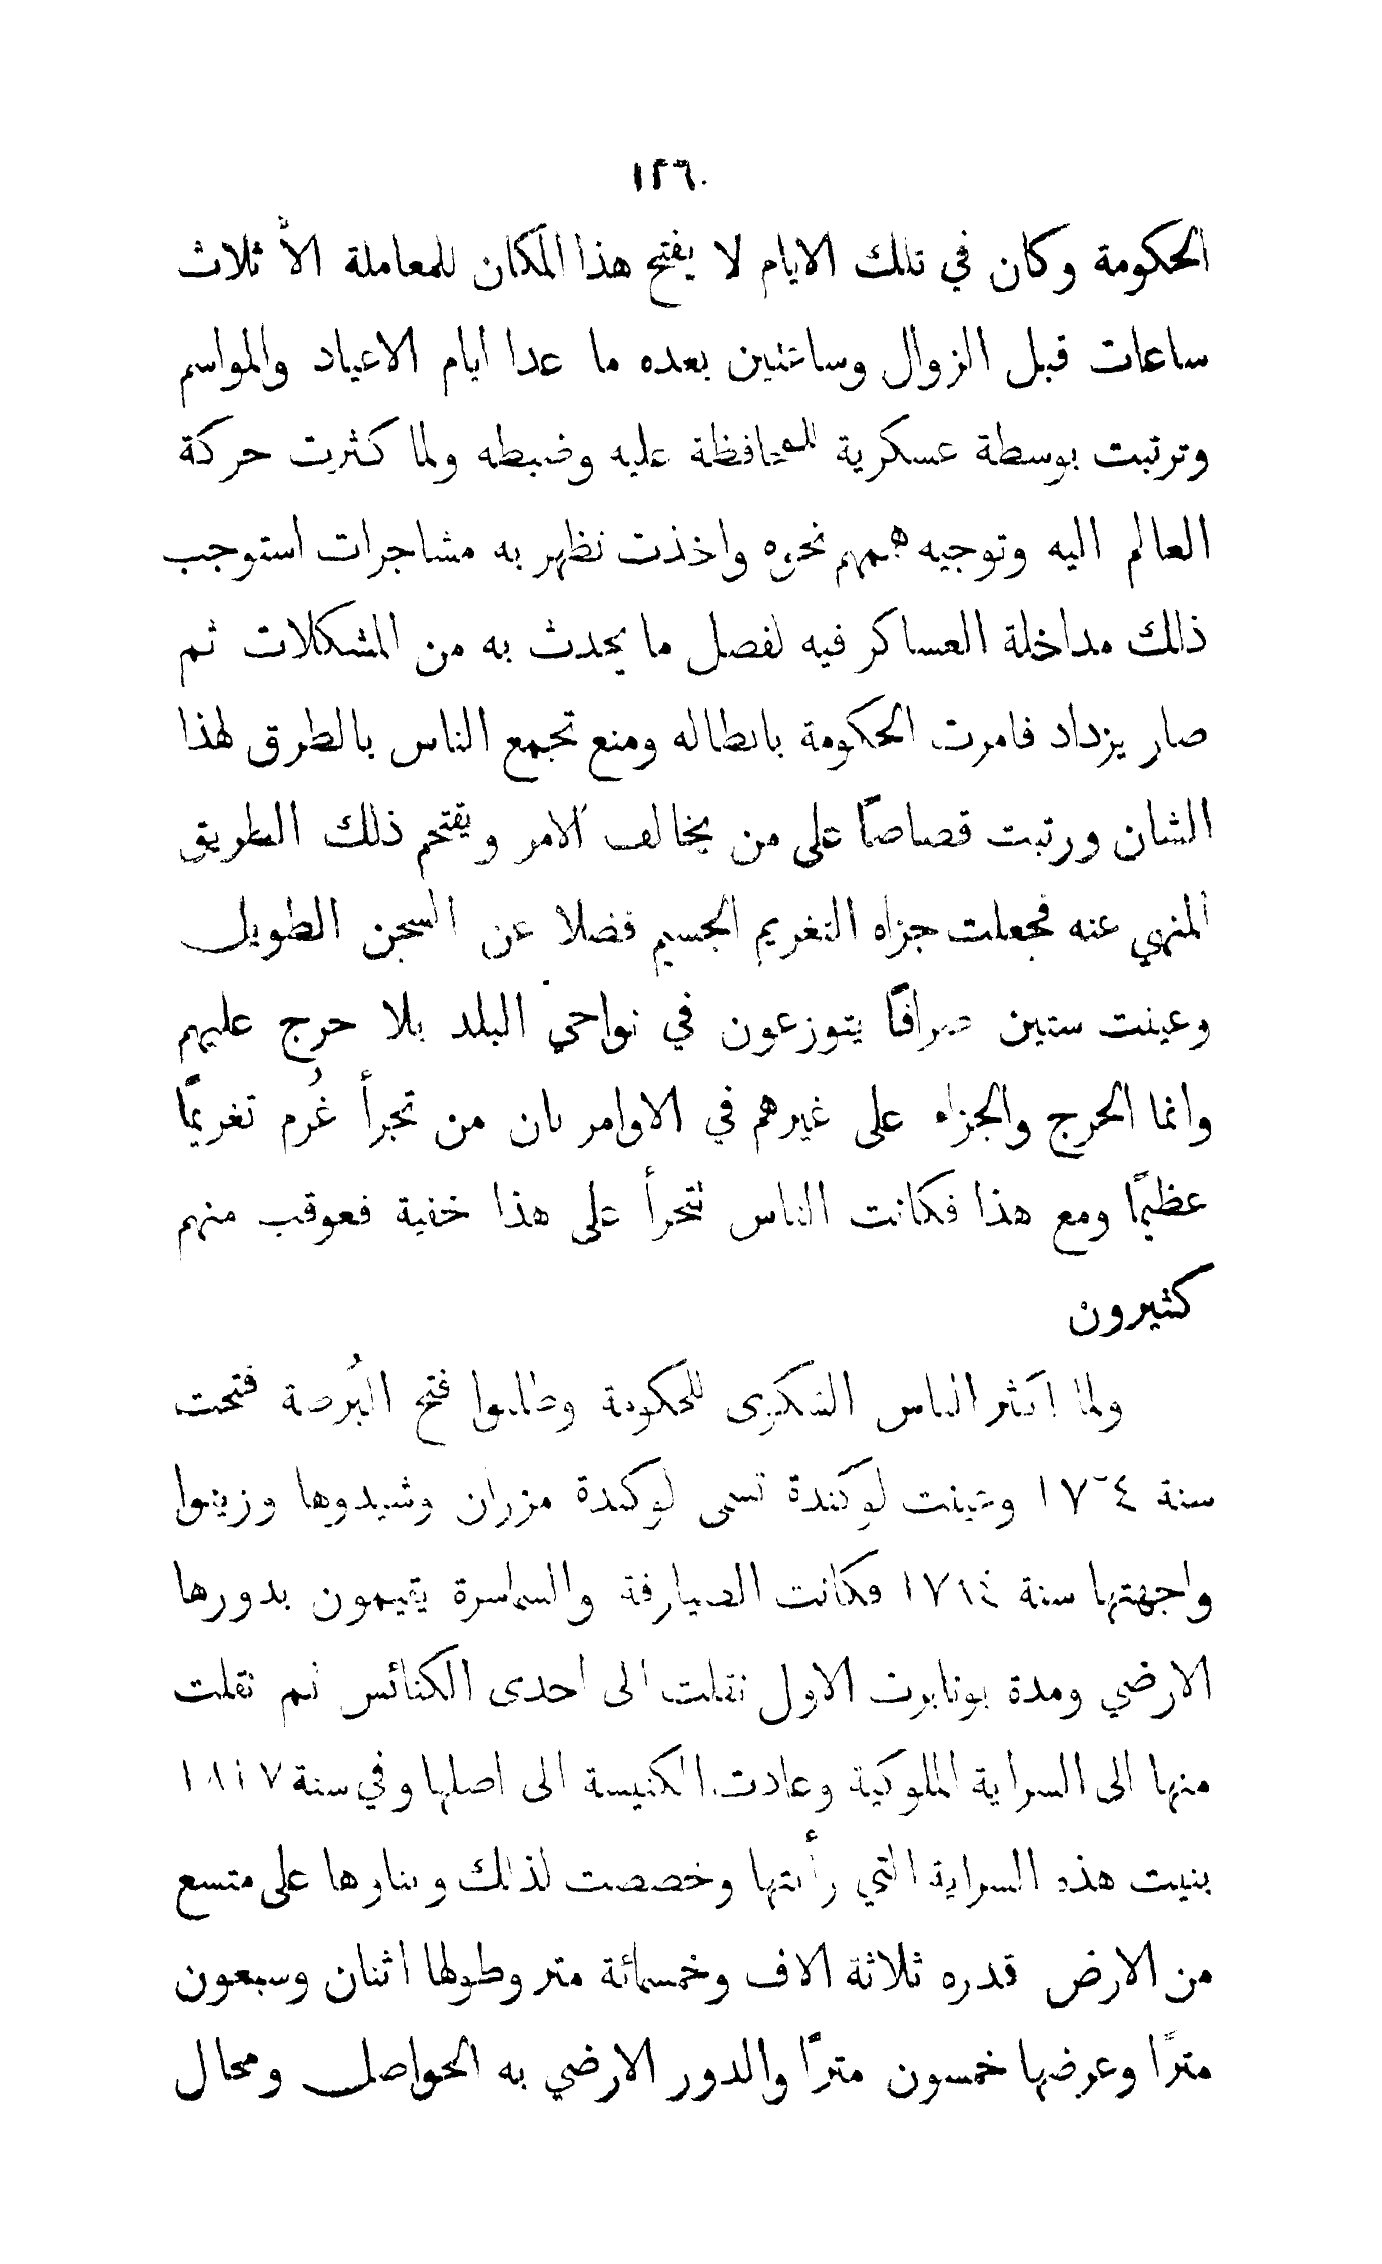 ١٢٦
الحكومة وكان في تلك الايام لا يفتح هذا المكان للمعاملة الاّ ثلاث
ساعات قبل الزوال وساعتين بعده ما عدا ايام الاعياد والمواسم
وترتبت بوسطة عسكرية للمحافظة عليه وضبطه ولما كثرت حركة
العالم اليه وتوجيه هممهم نحوه واخذت تظهر به مشاجرات استوجب
ذلك مداخلة العساكر فيه لفصل ما يحدث به من المشكلات ثم
صار يزداد فامرت الحكومة بابطاله ومنع تجمع الناس بالطرق لهذا
الشان ورتبت قصاصاً على من يخالف الامر ويقتحم ذلك الطريق
المنهي عنه فجعلت جزاه التغريم الجسيم فضلا عن السجن الطويل
وعينت ستين صرافاً يتوزعون في نواحي البلد بلا حرج عليهم
وانما الحرج والجزاء على غيرهم في الاوامر بان من تجرأ غُرم تغريماً
عظيماً ومع هذا فكانت الناس تتجرأ على هذا خفية فعوقب منهم
كثيرون
ولما اكثر الناس الشكوى للحكومة وطلبوا فتح البُرصة فتحت
سنة وعينت لوكندة تسمى لوكندة مزران وشيدوها وزينوا
واجهتها سنة فكانت الصيارفة والسماسرة يقيمون بدورها
الارضي ومدة بونابرت الاول نقلت الى احدى الكنائس ثم نقلت
منها الى السراية الملوكية وعادت الكنيسة الى اصلها وفي سنة
بنيت هذه السراية التي رأيتها وخصصت لذلك وبناوها على متسع
من الارض قدره ثلاثة الاف وخمسمائة متر وطولها اثنان وسبعون
متراً وعرضها خمسون متراً والدور الارضي به الحواصل ومحال